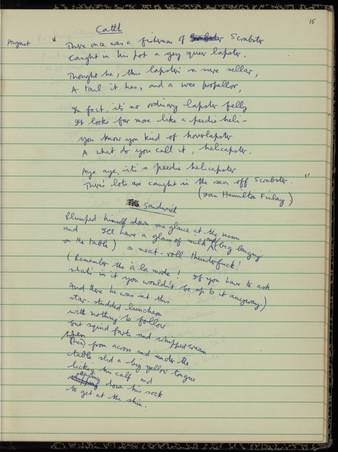 15
Catch
August "
There once was a fisherman of Scrabster
Caught in his pot a gey queer lapster.
Thought he, this lapster's a sure sellar,
A tail it has, and a wee propellor,
In fact, it's no ordinary lapster felly
It looks far more like a peedie heli-
You know you kind of hovrlapster
A what do you call it, helicapster.
Aye aye, it's a peedie helicapster
There's lots are caught in the sea off Scrabster.
(Ian Hamilton Finlay)
"
Sandwich
Plumped himself down one glance at the menu
and I'll have a glass of milk A big
on the table) a meat-roll thunderfuck!
(Remember the à la mode! If you have to ask
what's in it you wouldn't be up to it anyway)
And there he was at this
star-studded luncheon
with nothing to follow
but squid farts and whipped cream
when from across and under the
table slid a big yellow tongue
licked his calf and
down his sock
to get at the skin.